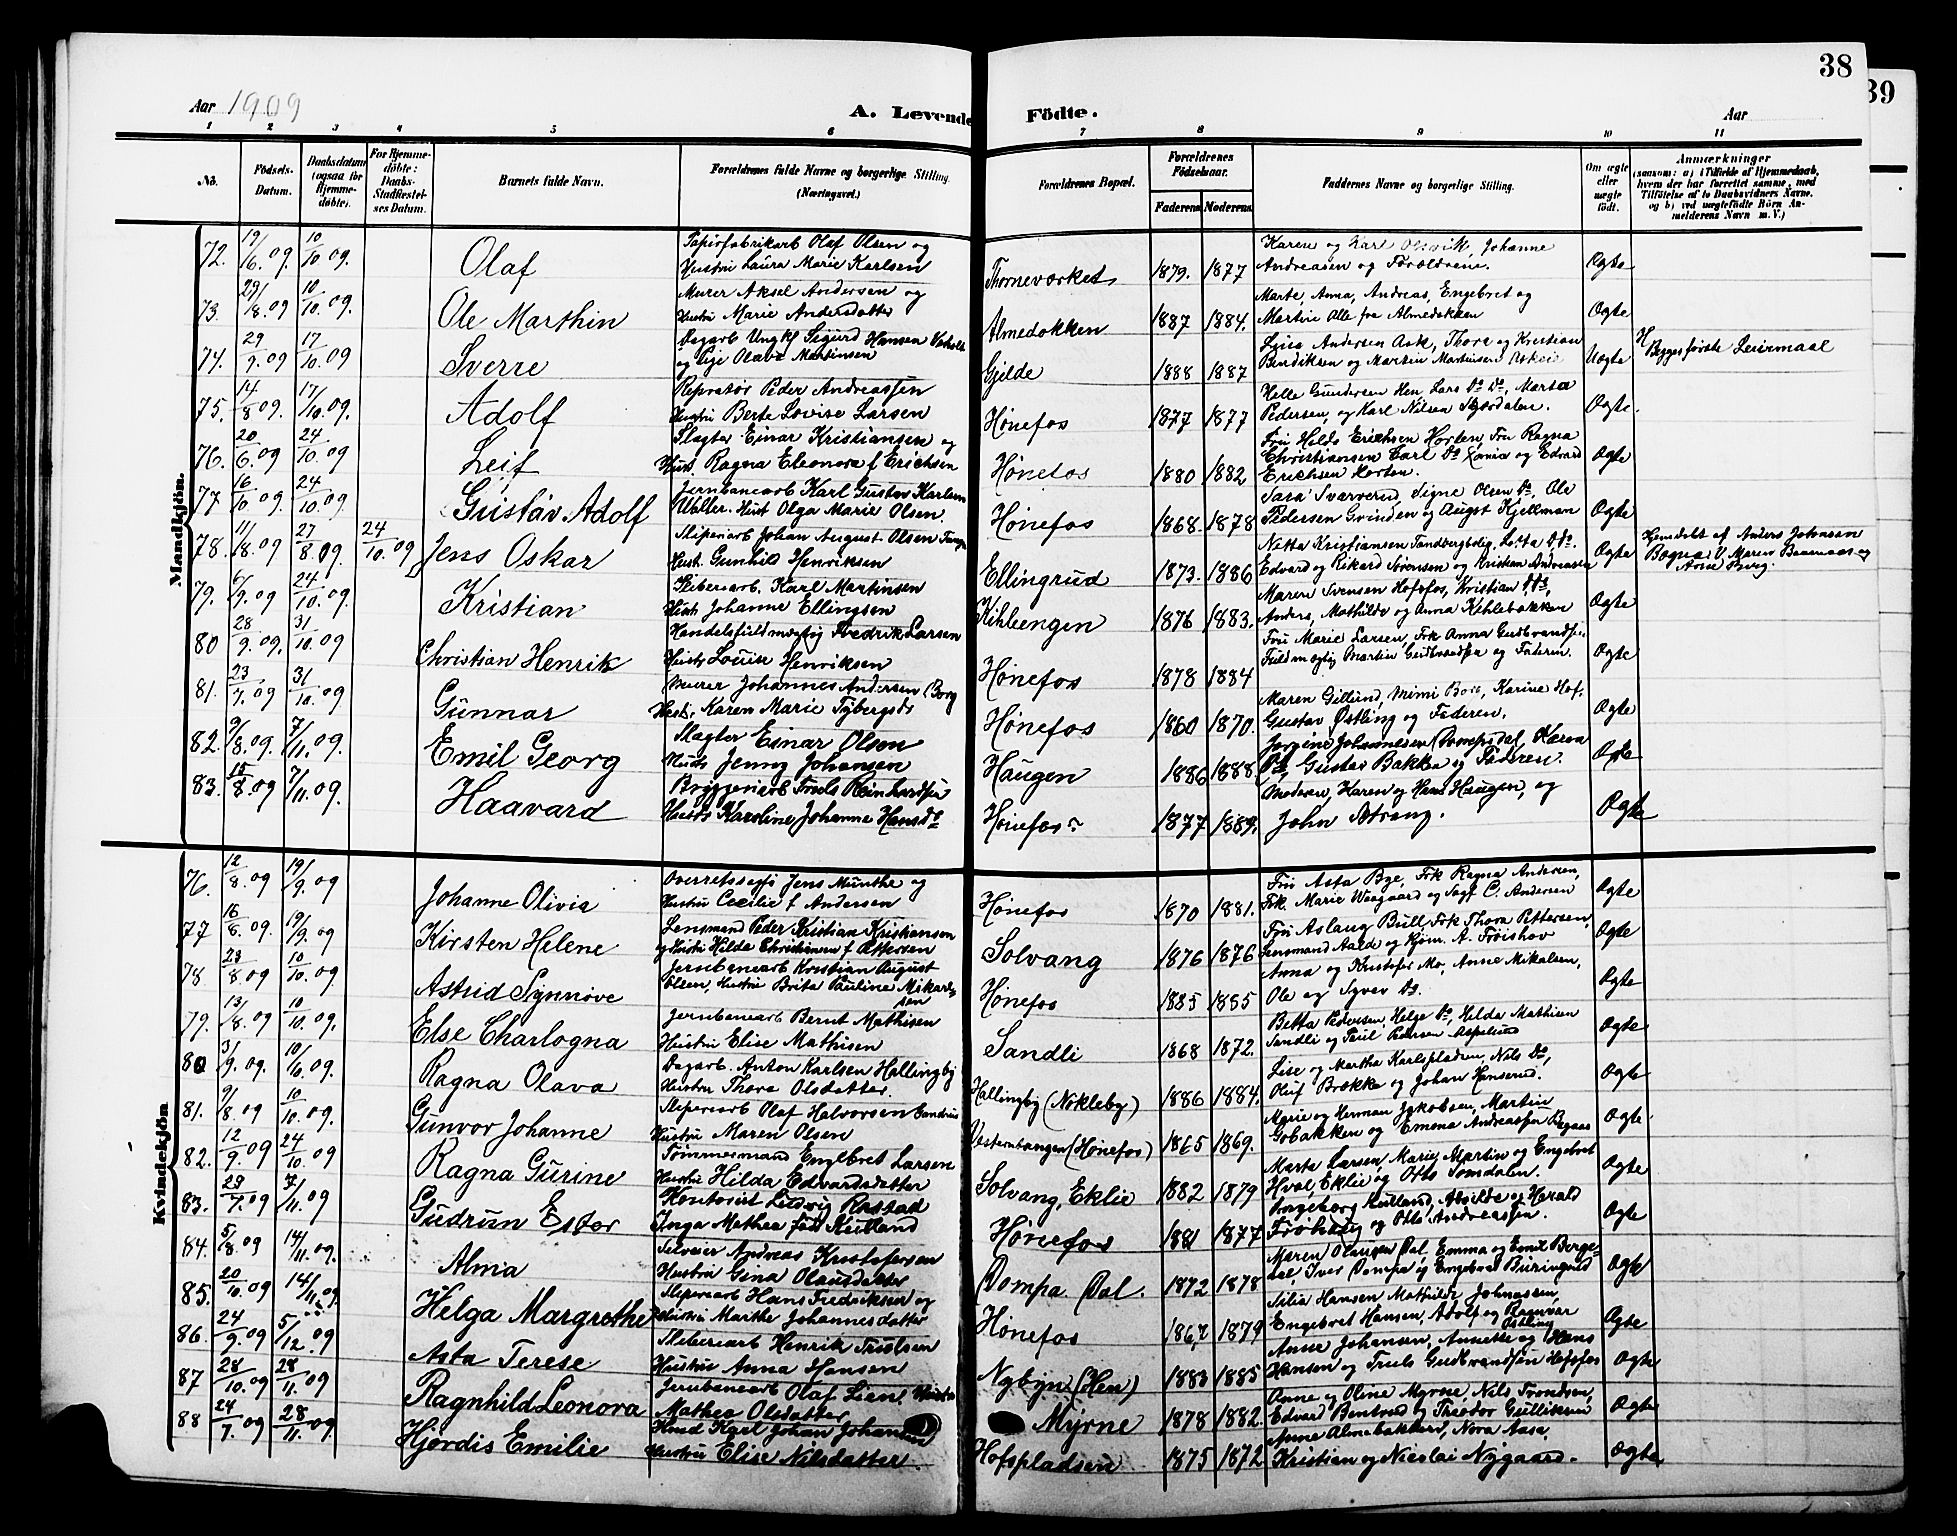 38
39
Aar 1909
A. Levende Födte.
Aar
1 2 3 4 5 6 7 8 9 10 11
No.
Födsels-Datum.
Daabsdatum (ogsaa for Hjemme-döbte).
For Hjemme-döbte: Daabs-Stadfæstel-ses Datum.
Barnets fulde Navn.
Forældrenes fulde Navne og borgerlige Stilling (Næringsvei.)
Forældrenes Bopæl.
Forældrenes Födselsaar.
Faderens Moderens
Faddernes Navne og borgerlige Stilling.
Om ægte eller uægte födt.
Anmærkninger
(saasom: a) i Tilfælde af Hjemmedaab, hvem der har forrettet samme, med Tilföielse af to Daabsvidners Navne, og b) ved uægtefödte Börn An-melderens Navn m. V.)
Mandkjön.
72. 19/6.09. 10/10 09. Olaf
Papirfabrikarb Olaf Olsen og
Hustru Laura Marie Karlsen
1879. 1877
Karen og Karl Johanne
Andreasen og Forældrene.
Ægte
73. 29/8.09 10/10.09. Ole Marthin
Murer Aksel Andersen og
Hustru Marie Andersdatter
Almedokken 1887 1884.
Marte, Anna, Andreas, Engebret og
Martin Olle fra Almedokken
Ægte
74. 29/9.09 17/10.09 Sverre
Dagarb Ungkl Sigurd Hansen
og Pige Olava Martinsen
Gjelde 1888 1887
Andersen Ask, Thora og Kristian
Bendiksen og Martin Martinsen
Uægte
Begges første Leiermaal
75. 14/8 09. 17/10.09. Adolf
Peder Andreassen
Hustru Berte Lovise Larsen
Hønefos 1877 1877
Helle Gundersen Hen, Lars Do Do, Marta
Pedersen, og Karl Nilsen
Ægte.
76. 20/6.09 24/10.09 Leif
Slagter Einar Kristiansen og
Hust. Ragna Eleonora f Erichsen
Hønefos 1880 1882
Fru Hilda Erichsen Horten, Fru Ragna
Christiansen Carl Do og Edvard
Erichsen Horten.
Ægte
77 16/10.09. 24/10.09 Gustav Adolf
Jernbanearb Karl Gustav Karlsen
Hust Olga Marie Olsen.
Hønefos 1868. 1878
Sara Signe Olsen Do, Ole
Pedersen Grinden og August Kjellman
Ægte
78. 11/8.09 27/8.09. 24/10.09 Jens Oskar
Sliperiarb Johan August Olsen
Hust. Gunhild Henriksen
Ellingrud 1873. 1886
Netta Kristiansen Lotta Do.
Edvard og Rikard Sørensen og Kristian Andreassen
Ægte
Hjemdøbt af Anders Johansen
79. 6/9.09 24/10.09. Kristian
Karl Martinsen
Hust Johanne Ellingsen
1876 1883.
Maren Svensen Hofsfos, Kristian Do,
Anders, Mathilde og Anna
Ægte
80 28/9.09. 31/10.09 Christian Henrik
Handelsfuldmægtig Fredrik Larsen
Hustr Louise Henriksen
Hønefos 1878 1884
Fru Marie Larsen, Frk Anna Gudbrandsen
Fuldmægtig Martin Gudbrandsen og Faderen.
Ægte
81. 23/7.09 31/10.09 Gunnar
Murer Johannes Andersen Borg
Hust. Karen Marie
Hønefos 1860 1870.
Maren Gillund, Mimi Karine Hof,
Gustav Østling og Faderen.
Ægte
82. 9/8.09. 7/11.09. Emil Georg
Slagter Einar Olsen
Hustr Jenny Johansen
Haugen 1886 1888
Jorgine Johannesen
Do, Gustav Bakke og Faderen.
Ægte
83. 15/8.09 7/11.09. Haavard
Bryggeriarb Truls
Hustr Karoline Johanne
Hønefos 1877 1889.
Moderen, Karen og Hans Haugen, og
John
Ægte
Kvindekjön
76. 12/8.09 19/9.09 Johanne Olivia
Overretssagf Jens Munthe og
Hustru Cecilie f Andersen
Hønefos 1870 1881.
Fru Asta Bye, Frk Ragna Andersen,
Frk. Marie Waagaard og Sagf C. Andersen
Ægte
77 16/8.09. 19/9.09 Kirsten Helene
Lensmand Peder Kristian Kristiansen
og Hustru Hilda Christiansen f
Solvang 1876 1876
Fru Aslaug Bull, Frk Thora Pettersen,
Lensmand Aalde og A. Frøishov
Ægte
78 23/8 09 10/10.09. Astrid Synnøve
Jernbanearb Kristian August
Olsen, Hustru Brita Pauline Mikael-
sen
Hønefos 1885 1885
Anna og Kristofer Mo, Anne Mikalsen,
Ole og Syver Do.
Ægte
79. 13/8.09 10/10.09. Else Charlogna
Jernbanearb Bernt Mathisen
Hustru Elise Mathisen
Sandli 1868 1872.
Betta Pedersen, Helge Do, Hilda Mathisen
Sandli og Paul Pedersen Aspelund
Ægte
80 3/9.09. 10/10.09. Ragna Olava
Dagarb. Anton Karlsen Hallingby
Hustru Thora Olsdatter.
Hallingby (Nokleby) 1886 1884.
Lise og Martha Karlspladsen, Nils Do,
Oluf Brække og Johan Hanserud.
Ægte
81. 9/8.09 10/10.09. Gunvor Johanne
Sliperiarb Olaf Halvorsen
Hustru Maren Olsen
(Hønefos) 1865 1869.
og Herman Jakobsen, Martin
Gobakken og Emma Andreassen
Ægte
82. 12/9.09 24/10.09 Ragna Gurine
Tømmermand Engebret Larsen
Hustru Hilda Edvardsdatter
Solvang, Eklie 1882 1879
Marte Larsen, Marie, Martin og Engebret
Hval, Eklie og Otto Somdalen.
Ægte
83. 29/7.09 7/11.09 Gudrun Ester
Kontorist Ludvig Rastad
Inga Mathea født Reitland
Hønefos 1881 1877
Ingeborg Reitland, og Harald
og Otto Andreassen.
Ægte
84. 5/8.09 14/11.09. Alma
Andreas Kristofersen
Hustru Gina Olausdatter
Dompa Dal. 1872 1878
Maren Olausen Dal, Emma og Emil
Iver Dompa og Engebret Buringrud
Ægte
85. 20/10.09 14/11.09. Helga Margrethe
Sliperiarb Hans Fredriksen og
Hustru Marthe Johannesdatter
Hønefos 1867 1879
Hansen Mathilde Johnassen,
Engebret Hansen, Adolf og Ragnvar
Østling
Ægte
86. 24/9.09 5/12.09 Asta Terese
Sliberiarb Henrik Trulsen
Hustru Anna Hansen
Nybyn (Hen) 1883 1885
Anne Johansen, Annette og Hans
Hansen og Truls Gudbrandsen Hofsfos
Ægte
87 28/10.09 28/11.09 Ragnhild Leonora
Jernbanearb Olaf Lien, Hustru
Mathea Olsdatter
Myrne 1878 1882.
Anne og Oline Myrne, Nils Trondsen,
Edvard Bentrud og Theodor Gulliksen
Ægte
88 24/7.09 28/11.09 Hjørdis Emilie
Karl Johan Johansen
Hustru Elise Nilsdatter.
Hofspladsen 1875 1872
Anne Almebakken, Nora Aasa,
Kristian og Nicolai Nygaard.
Ægte